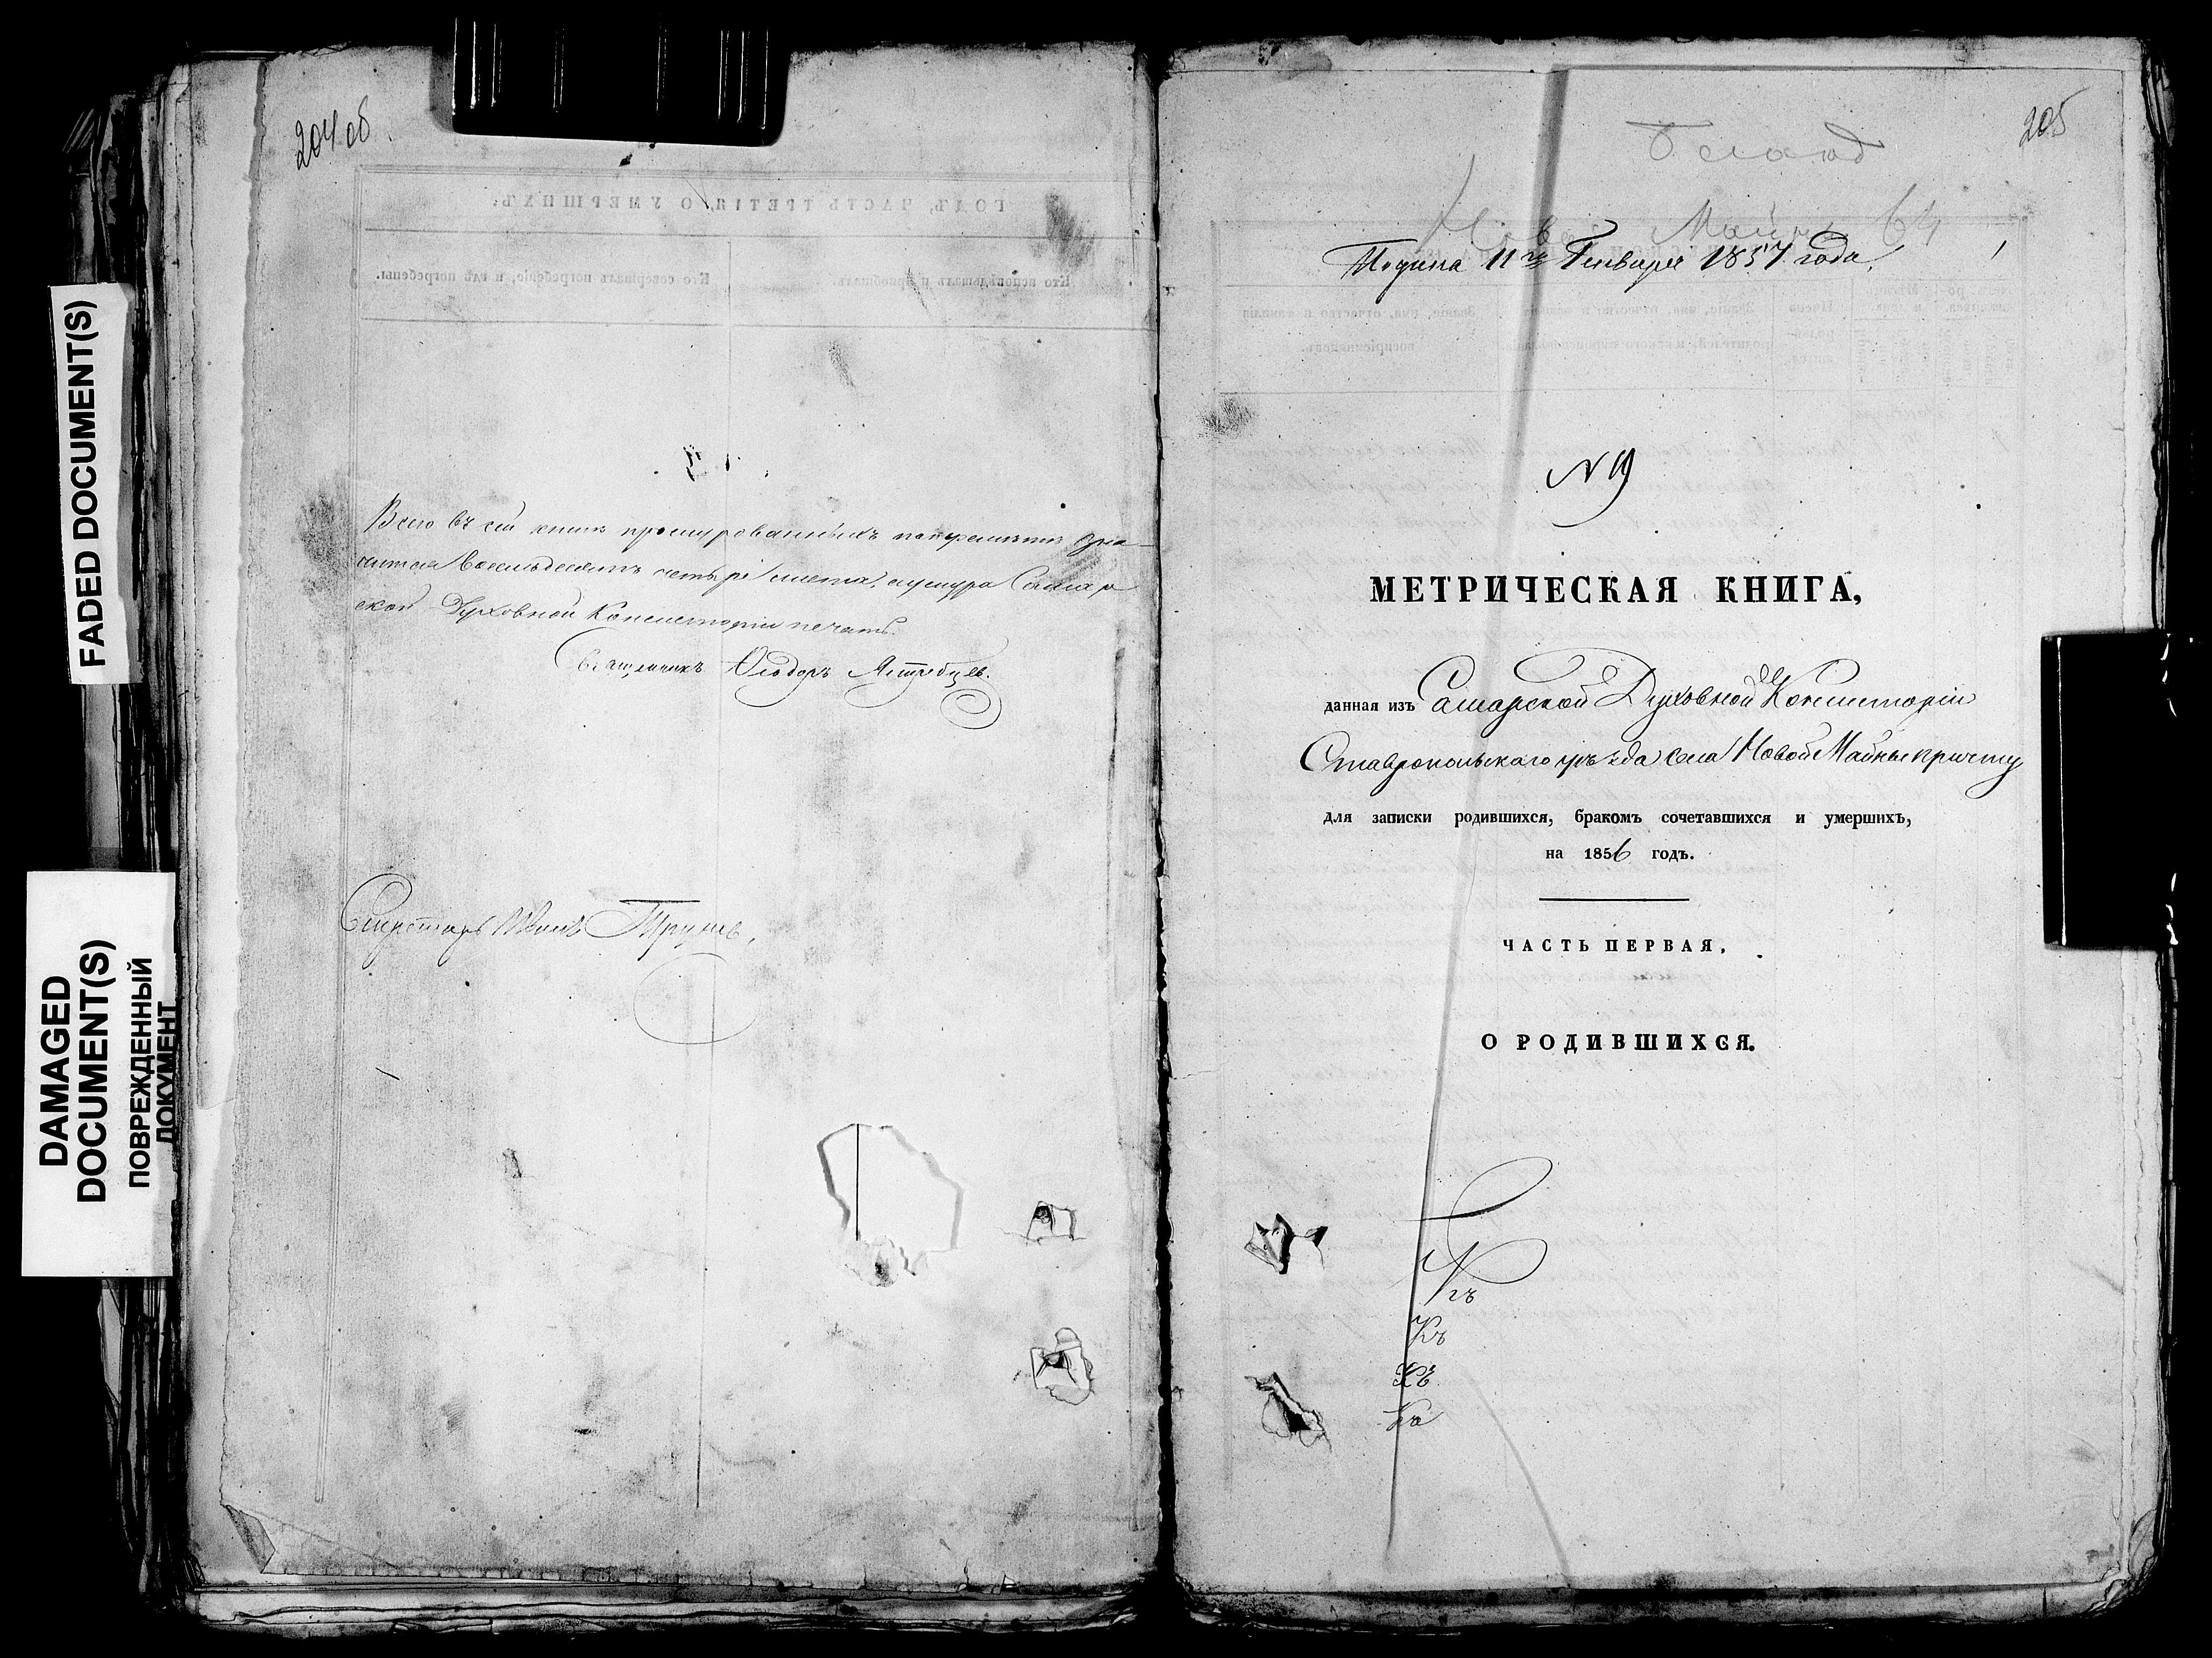 FADED DOCUMENT(S)
DAMAGED
DOCUMENT(S)
ПОВРЕЖДЕННЫЙ
ДОКУМЕНТ
204 об
ГОДЪ, ЧАСТЬ ТРЕТІЯ, О УМЕРШИХЪ.
Кто исповѣдывалъ и пріобщалъ.
Кто совершалъ погребеніе, и гдѣ погребены.
Всего въ сей книгѣ прошнурованныхъ зна-
чится восемьдесятъ четыре листа, а у шнура Самар
ской Духовной Консисторіи печать.
Священникъ Ѳеодоръ Ястребцевъ.
Секретарь Иванъ
205
64
Подана 11го Генваря 1857 года.
N 19
МЕТРИЧЕСКАЯ КНИГА,
данная изъ Самарской Духовной Консисторіи
Ставропольскаго уѣзда села Новой Майны причту
для записки родившихся, бракомъ сочетавшихся и умершихъ,
на 1856 годъ.
ЧАСТЬ ПЕРВАЯ,
О РОДИВШИХСЯ.
Къ